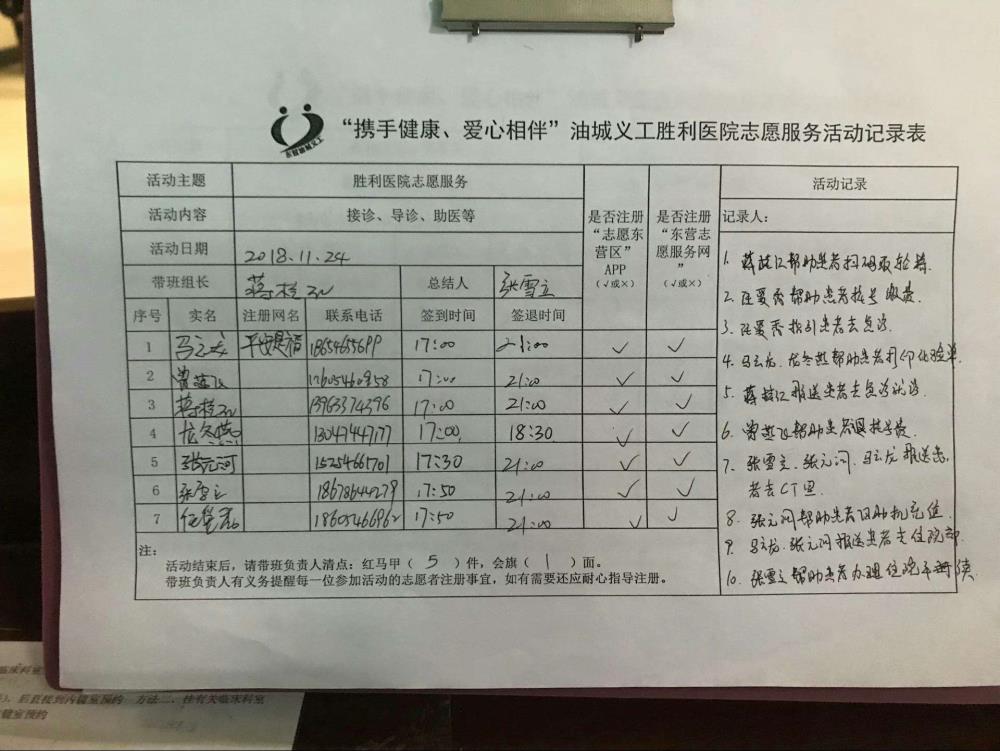 “携手健康、爱心相伴”油城义工胜利医院志愿服务活动记录表
活动主题 胜利医院志愿服务
活动内容 接诊、导诊、助医等
活动日期 2018.11.24
带班组长 总结人 张雪立
是否注册“志愿东营区”APP（√或×）
是否注册“东营志愿服务网”（√或×）
序号 实名 注册网名 联系电话 签到时间 签退时间
1 马云龙 18654655699 17:00 21:00 √ √
2 17605460958 17:00 21:00 √ √
3 13963374396 17:00 21:00 √ √
4 龙冬燕 13047447177 17:00 18:30 √ √
5 15254661701 17:30 21:00 √ √
6 张雪立 18678644279 17:50 21:00 √ √
7 18605466962 17:50 21:00 √ √
注：
活动结束后，请带班负责人清点：红马甲（ 5 ）件，会旗（ 1 ）面。
带班负责人有义务提醒每一位参加活动的志愿者注册事宜，如有需要还应耐心指导注册。
活动记录
记录人：
1. 帮助患者扫码取轮椅.
2. 帮助患者挂号缴费.
3. 指引患者去急诊.
4. 马云龙、龙冬燕帮助患者打印化验单.
5. 护送患者去急诊就诊.
6. 帮助患者退挂号费.
7. 张雪立、张元河、马云龙护送患
者去CT室.
8. 张元河帮助患者自助机充值.
9. 马云龙、张元河护送患者去住院部
10. 张雪立帮助患者办理住院手续